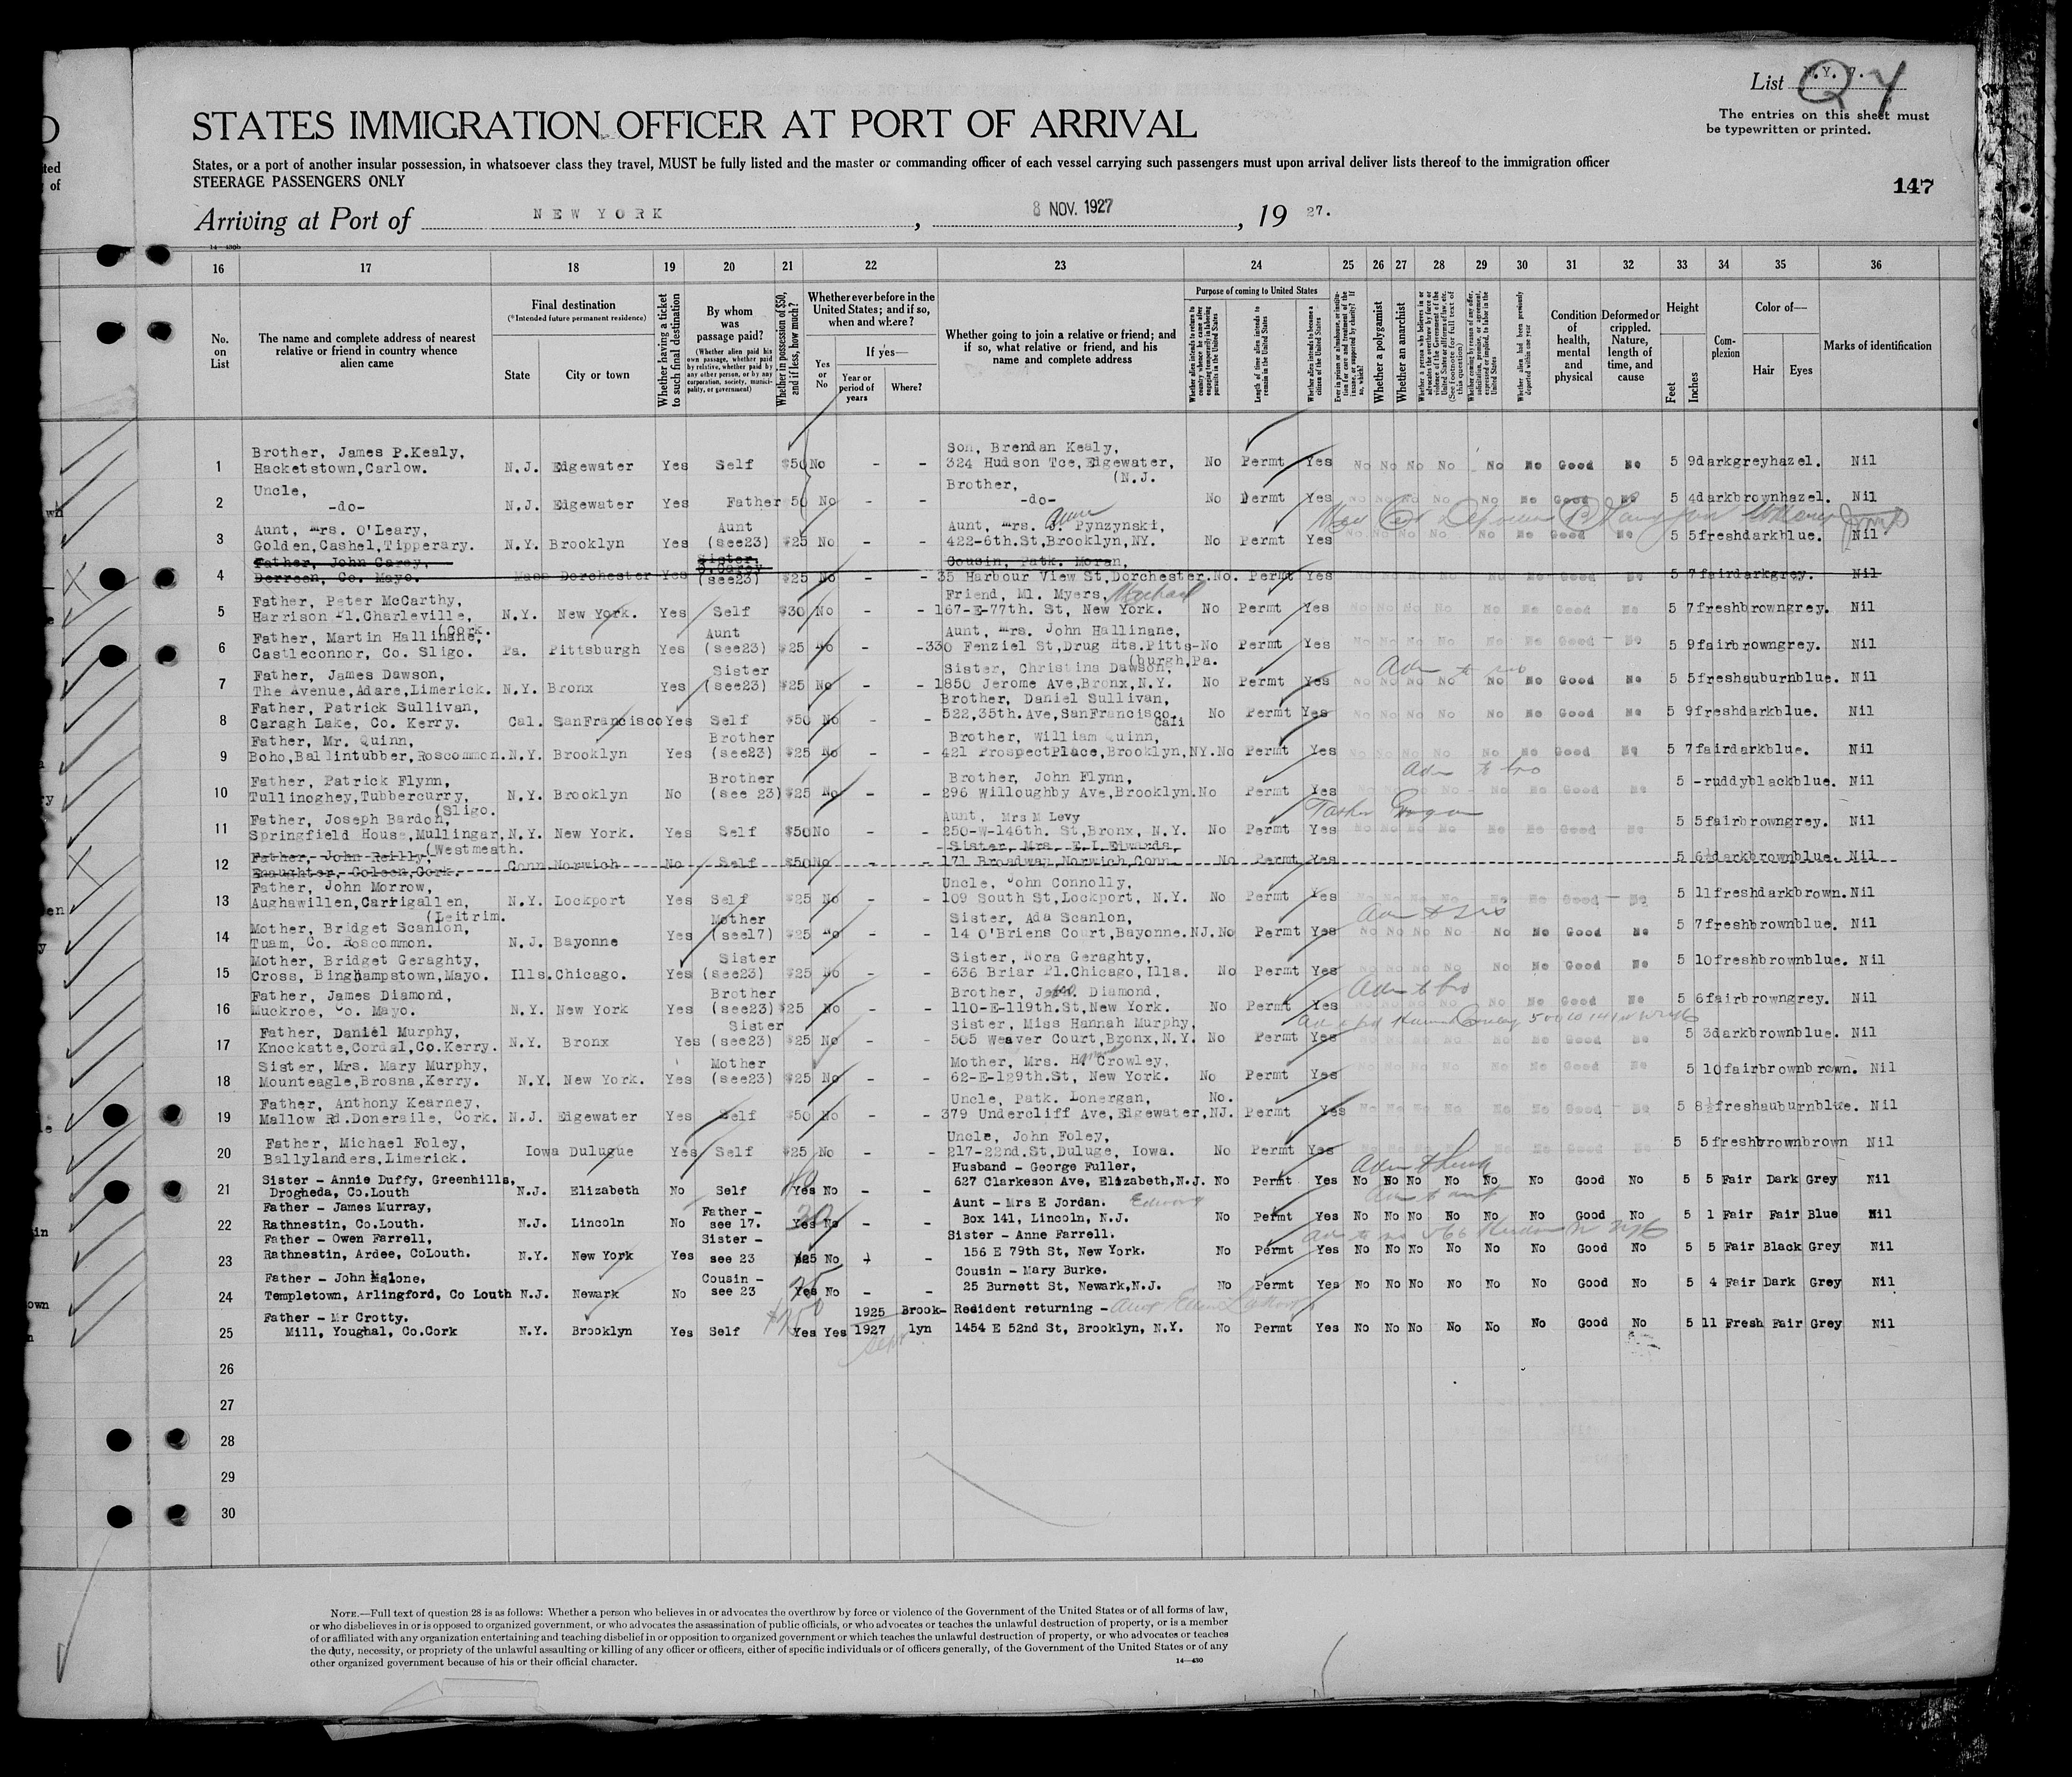 List N.Y. 7.
Q 4
The entries on this sheet must
be typewritten or printed.
STATES IMMIGRATION OFFICER AT PORT OF ARRIVAL
States, or a port of another insular possession, in whatsoever class they travel, MUST be fully listed and the master or commanding officer of each vessel carrying such passengers must upon arrival deliver lists thereof to the immigration officer
STEERAGE PASSENGERS ONLY
147
Arriving at Port of NEW YORK, 8 NOV. 1927, 19 27.
16 17 18 19 20 21 22 23 24 25 26 27 28 29 30 31 32 33 34 35 36
No. on List
The name and complete address of nearest relative or friend in country whence alien came
Final destination
(*Intended future permanent residence)
State
City or town
Whether having a ticket to such final destination
By whom was passage paid?
(Whether alien paid his own passage, whether paid by relative, whether paid by any other person, or by any corporation, society, municipality, or government)
Whether in possession of $50, and if less, how much?
Whether ever before in the United States; and if so, when and where?
Yes or No
If yes—
Year or period of years
Where?
Whether going to join a relative or friend; and if so, what relative or friend, and his name and complete address
Purpose of coming to United States
Length of time alien intends to remain in the United States
Whether alien intends to become a citizen of the United States
Whether a polygamist
Whether an anarchist
Whether alien had been previously deported within one year
Condition of health, mental and physical
Deformed or crippled. Nature, length of time, and cause
Height
Feet
Inches
Complexion
Color of—
Hair
Eyes
Marks of identification
1 Brother, James P.Kealy, Hacketstown,Carlow. N.J. Edgewater Yes Self $50 No - - Son, Brendan Kealy, 324 Hudson Tce,Edgewater, (N.J. No Permt Yes No No No No No No Good No 5 9 dark grey hazel. Nil
2 Uncle, -do- N.J. Edgewater Yes Father 50 No - - Brother, -do- No Permt Yes No No No No No No Good No 5 4 dark brown hazel. Nil
3 Aunt, Mrs. O'Leary, Golden,Cashel,Tipperary. N.Y. Brooklyn Yes Aunt (see23) $25 No - - Aunt, Mrs. J. Pynzynski, 422-6th.St,Brooklyn,NY. No Permt Yes No No No No No No Good No 5 5 fresh dark blue. Nil
4 Father, John Carey, Derreen, Co. Mayo. Mass Dorchester Yes Sister (see23) $25 No - - Cousin, Patk. Moran, 35 Harbour View St,Dorchester. No. Permt Yes 5 7 fair dark grey. Nil
5 Father, Peter McCarthy, Harrison Pl.Charleville, (Cork. N.Y. New York. Yes Self $30 No - - Friend, Ml. Myers, Michael 167-E-77th. St, New York. No Permt Yes No No No No No No Good No 5 7 fresh brown grey. Nil
6 Father, Martin Hallinane, Castleconnor, Co. Sligo. Pa. Pittsburgh Yes Aunt (see23) $25 No - - Aunt, Mrs. John Hallinane, 330 Fenziel St,Drug Hts.Pitts- (burgh,Pa. No Permt Yes No No No No No No Good No 5 9 fair brown grey. Nil
7 Father, James Dawson, The Avenue,Adare,Limerick. N.Y. Bronx Yes Sister (see23) $25 No - - Sister, Christina Dawson, 1850 Jerome Ave,Bronx,N.Y. No Permt Yes No No No No No No Good No 5 5 fresh auburn blue. Nil
8 Father, Patrick Sullivan, Caragh Lake, Co. Kerry. Cal. SanFrancisco Yes Self $50 No - - Brother, Daniel Sullivan, 522,35th.Ave,SanFrancisco, Cali No Permt Yes No No No No No No Good No 5 9 fresh dark blue. Nil
9 Father, Mr. Quinn, Boho,Ballintubber,Roscommon. N.Y. Brooklyn Yes Brother (see23) $25 No - - Brother, William Quinn, 421 ProspectPlace,Brooklyn,NY. No Permt Yes No No No No No No Good No 5 7 fair dark blue. Nil
10 Father, Patrick Flynn, Tullinoghey,Tubbercurry, (Sligo. N.Y. Brooklyn No Brother (see 23) $25 No - - Brother, John Flynn, 296 Willoughby Ave,Brooklyn. No Permt Yes No No No No No No Good No 5 - ruddy black blue. Nil
11 Father, Joseph Bardon, Springfield House,Mullingar, (Westmeath. N.Y. New York. Yes Self $50 No - - Aunt, Mrs M Levy 250-W-146th. St,Bronx, N.Y. No Permt Yes No No No No No No Good No 5 5 fair brown grey. Nil
12 Father, John Reilly, Enaughter, Coleen,Cork. Conn Norwich No Self $50 No - - Sister, Mrs. E.L Edwards, 171 Broadway,Norwich,Conn. No Permt Yes 5 6½ dark brown blue. Nil
13 Father, John Morrow, Aughawillen,Carrigallen, (Leitrim. N.Y. Lockport Yes Self $25 No - - Uncle, John Connolly, 109 South St,Lockport, N.Y. No Permt Yes No No No No No No Good No 5 11 fresh dark brown. Nil
14 Mother, Bridget Scanlon, Tuam, Co. Roscommon. N.J. Bayonne Yes Mother (see17) $25 No - - Sister, Ada Scanlon, 14 O'Briens Court,Bayonne.NJ. No Permt Yes No No No No No No Good No 5 7 fresh brown blue. Nil
15 Mother, Bridget Geraghty, Cross, Binghampstown,Mayo. Ills. Chicago. Yes Sister (see23) $25 No - - Sister, Nora Geraghty, 636 Briar Pl.Chicago, Ills. No Permt Yes No No No No No No Good No 5 10 fresh brown blue. Nil
16 Father, James Diamond, Muckroe, Co. Mayo. N.Y. New York Yes Brother (see23) $25 No - - Brother, John. Diamond, 110-E-119th.St,New York. No Permt Yes No No No No No No Good No 5 6 fair brown grey. Nil
17 Father, Daniel Murphy, Knockatte,Cordal,Co.Kerry. N.Y. Bronx Yes Sister (see23) $25 No - - Sister, Miss Hannah Murphy, 505 Weaver Court,Bronx,N.Y. No Permt Yes No No No No No No Good No 5 3 dark brown blue. Nil
18 Sister, Mrs. Mary Murphy, Mounteagle,Brosna,Kerry. N.Y. New York. Yes Mother (see23) $25 No - - Mother, Mrs. H. Crowley, 62-E-129th.St, New York. No Permt Yes No No No No No No Good No 5 10 fair brown brown. Nil
19 Father, Anthony Kearney, Mallow Rd.Doneraile, Cork. N.J. Edgewater Yes Self $50 No - - Uncle, Patk. Lonergan, 379 Undercliff Ave,Edgewater,NJ. No. Permt Yes No No No No No No Good No 5 8½ fresh auburn blue. Nil
20 Father, Michael Foley, Ballylanders,Limerick. Iowa Dulugue Yes Self $25 No - - Uncle, John Foley, 217-22nd.St,Duluge, Iowa. No Permt Yes No No No No No No Good No 5 5 fresh brown brown Nil
21 Sister - Annie Duffy, Greenhills, Drogheda, Co.Louth N.J. Elizabeth No Self Yes No - - Husband - George Fuller, 627 Clarkeson Ave, Elizabeth,N.J. No Permt Yes No No No No No No Good No 5 5 Fair Dark Grey Nil
22 Father - James Murray, Rathnestin, Co.Louth. N.J. Lincoln No Father - see 17. Yes No - - Aunt - Mrs E Jordan. Edward Box 141, Lincoln, N.J. No Permt Yes No No No No No No Good No 5 1 Fair Fair Blue Nil
23 Father - Owen Farrell, Rathnestin, Ardee, CoLouth. N.Y. New York Yes Sister - see 23 $25 No - - Sister - Anne Farrell. 156 E 79th St, New York. No Permt Yes No No No No No No Good No 5 5 Fair Black Grey Nil
24 Father - John Malone, Templetown, Arlingford, Co Louth N.J. Newark No Cousin - see 23 Yes No - - Cousin - Mary Burke. 25 Burnett St, Newark,N.J. No Permt Yes No No No No No No Good No 5 4 Fair Dark Grey Nil
25 Father - Mr Crotty. Mill, Youghal, Co.Cork N.Y. Brooklyn Yes Self Yes Yes 1925 1927 Sept Brooklyn Redident returning - 1454 E 52nd St, Brooklyn, N.Y. No Permt Yes No No No No No No Good No 5 11 Fresh Fair Grey Nil
26
27
28
29
30
NOTE.—Full text of question 28 is as follows: Whether a person who believes in or advocates the overthrow by force or violence of the Government of the United States or of all forms of law,
or who disbelieves in or is opposed to organized government, or who advocates the assassination of public officials, or who advocates or teaches the unlawful destruction of property, or is a member
of or affiliated with any organization entertaining and teaching disbelief in or opposition to organized government or which teaches the unlawful destruction of property, or who advocates or teaches
the duty, necessity, or propriety of the unlawful assaulting or killing of any officer or officers, either of specific individuals or of officers generally, of the Government of the United States or of any
other organized government because of his or their official character.
14—430